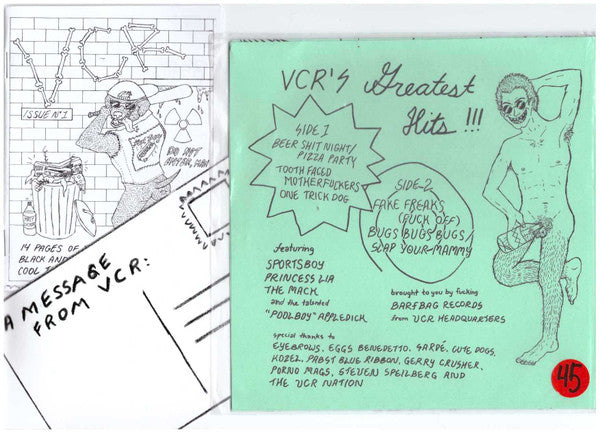 VCR
ISSUE Nº1
14 PAGES OF
BLACK AND
COOL
A MESSAGE
FROM VCR:
VCR'S Greatest
Hits !!!
SIDE 1
BEER SHIT NIGHT/
PIZZA PARTY
TOOTH FACED
MOTHERFUCKERS
ONE TRICK DOG
SIDE-2
FAKE FREAKS
(FUCK OFF)
BUGS BUGS BUGS/
SLAP YOUR MAMMY
featuring
SPORTSBOY
PRINCESS LIA
THE MACK
and the talented
"POOLBOY" APPLEDICK
brought to you by fucking
BARFBAG RECORDS
from VCR HEADQUARTERS
special thanks to
EYEBROWS, EGGS BENEDETTO, SARPÉ, CUTE DOGS,
KOZEL, PABST BLUE RIBBON, GERRY CRUSHER,
PORNO MAGS, STEVEN SPEILBERG AND
THE VCR NATION
45